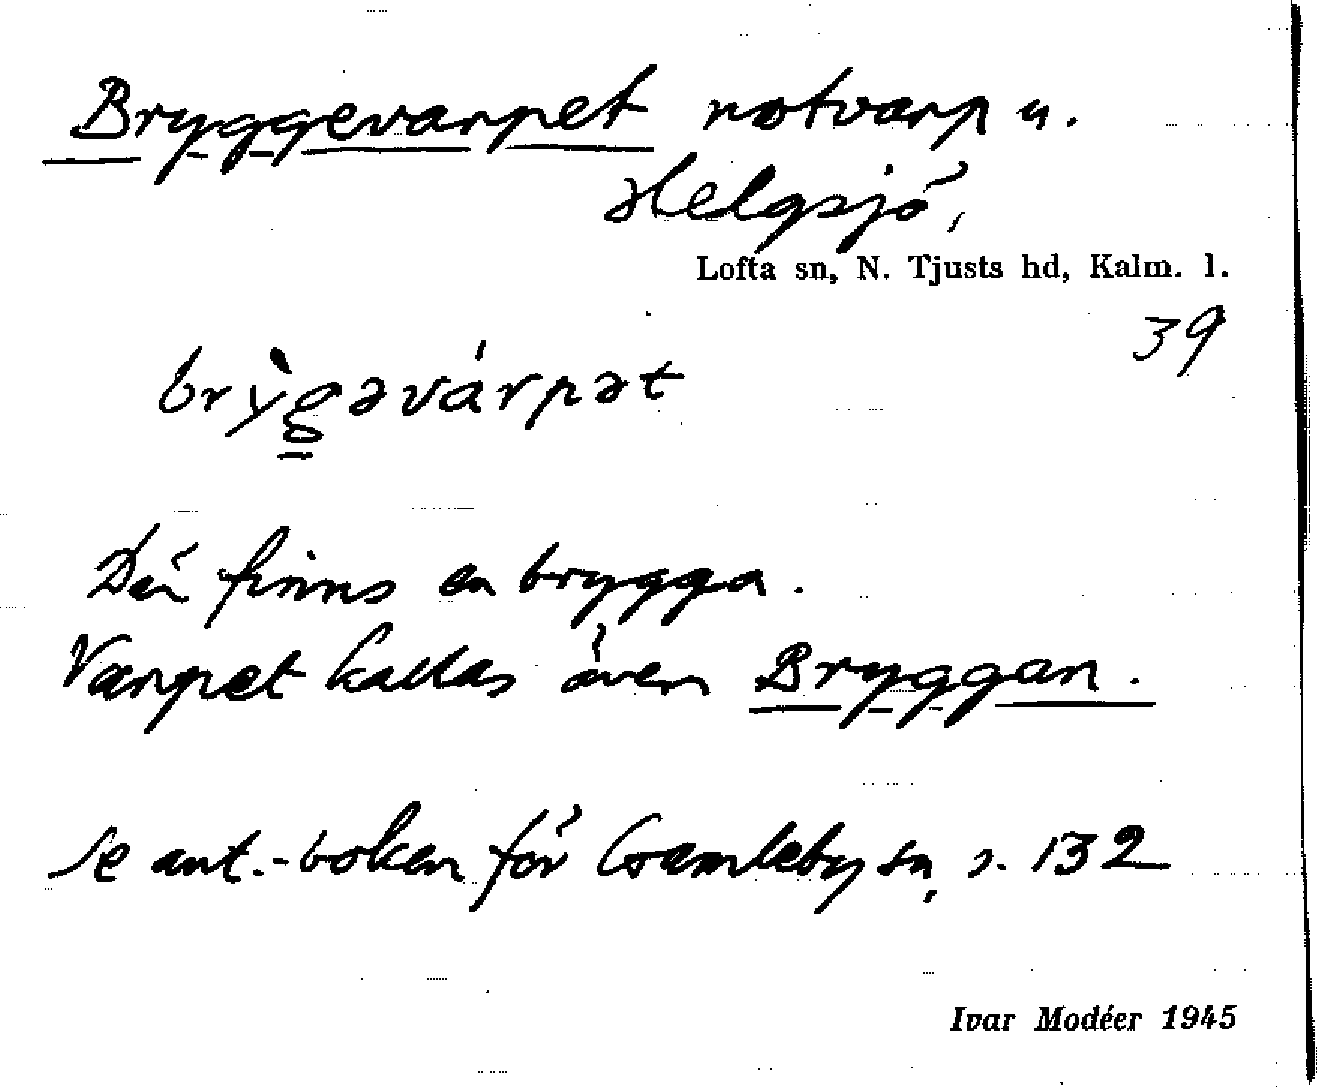 Bryggevarpet notvarp u.
Helgsjö,
Lofta sn, N. Tjusts hd, Kalm. l.
39
brỳg̱əvárpət
Där finns en brygga.
Varpet kallas även Bryggan.
Se ant.-boken för Gamleby sn, s. 132
Ivar Modéer 1945